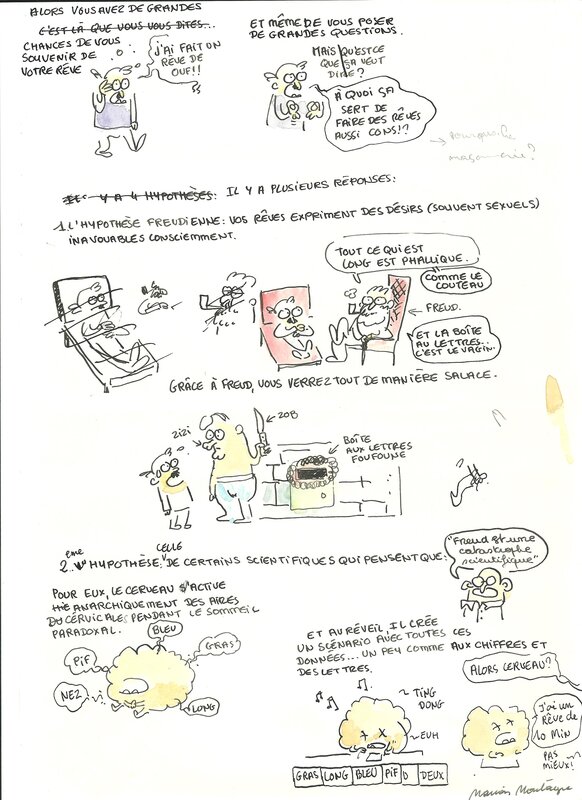 ALORS VOUS AVEZ DE GRANDES
C'EST LÀ QUE VOUS VOUS DITES...
CHANCES DE VOUS
SOUVENIR DE
VOTRE RÊVE
J'AI FAIT UN
RÊVE DE
OUF!!
ET MÊME DE VOUS POSER
DE GRANDES QUESTIONS.
MAIS QU'EST CE
QUE SA VEUT
DIRE?
À QUOI SA
SERT DE
FAIRE DES RÊVES
AUSSI CONS!?
→ pourquoi
IL Y A 4 HYPOTHÈSES: IL Y A PLUSIEURS RÉPONSES:
1. L'HYPOTHÈSE FREUDIENNE: VOS RÊVES EXPRIMENT DES DÉSIRS (SOUVENT SEXUELS)
INAVOUABLES CONSCIEMMENT.
TOUT CE QUI EST
LONG EST PHALLIQUE.
COMME LE
COUTEAU
← FREUD.
ET LA BOÎTE
AU LETTRES..
C'EST LE VAGIN.
GRÂCE À FREUD, VOUS VERREZ TOUT DE MANIÈRE SALACE.
ZIZI
ZOB
BOÎTE
AUX LETTRES
FOUFOUNE
CELLE
2.ème HYPOTHÈSE: DE CERTAINS SCIENTIFIQUES QUI PENSENT QUE:
"Freud est une
catastrophe
scientifique"
POUR EUX, LE CERVEAU S'ACTIVE
ANARCHIQUEMENT DES AIRES
DU CERVICALE PENDANT LE SOMMEIL
PARADOXAL.
BLEU
GRAS
PIF
NEZ
LONG
ET AU RÉVEIL, IL CRÉE
UN SCÉNARIO AVEC TOUTES CES
DONNÉES... UN PEU COMME AUX CHIFFRES ET
DES LETTRES.
TING
DONG
EUH
GRAS LONG BLEU PIF O DEUX
ALORS CERVEAU?
J'ai un
RÊVE DE
10 MIN
PAS
MIEUX!
Marion Montaigne